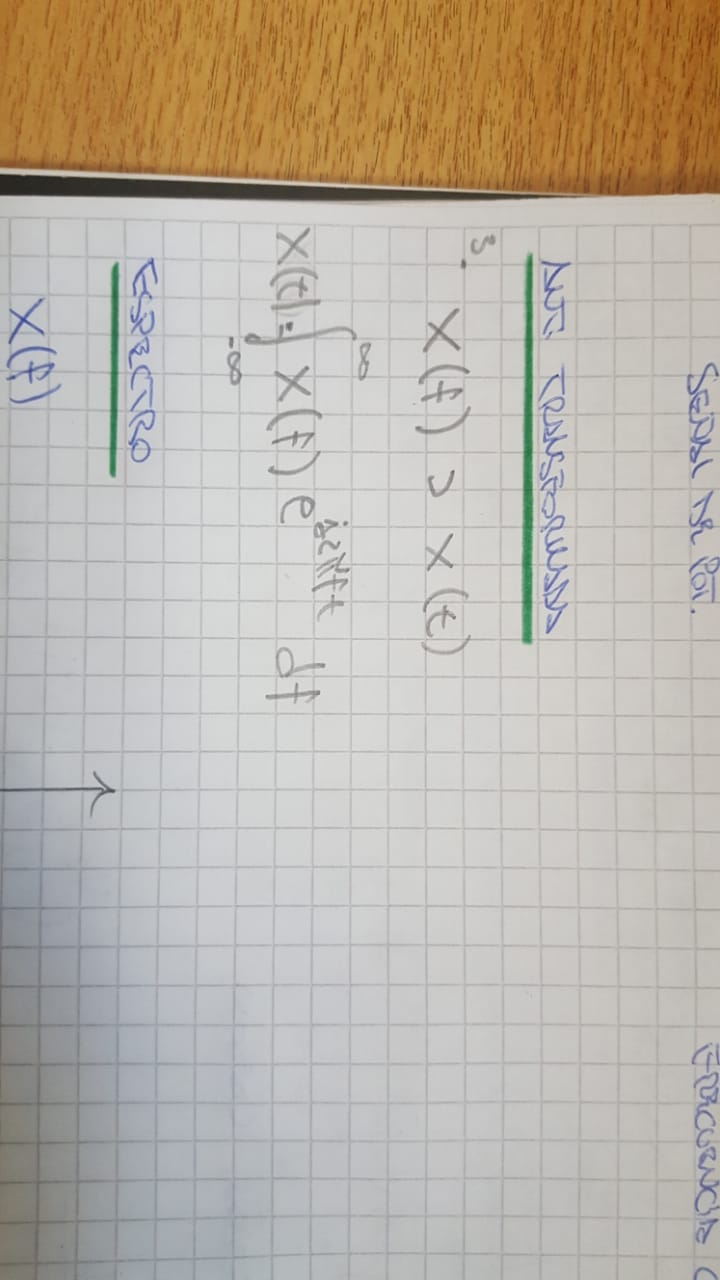 SEÑAL DE POT. FRECUENCIA
ANTI TRANSFORMADA
3. X(f) ⊃ X(t)
X(t) = ∫_{-∞}^{∞} X(f) e^{j2πft} df
ESPECTRO
X(f)